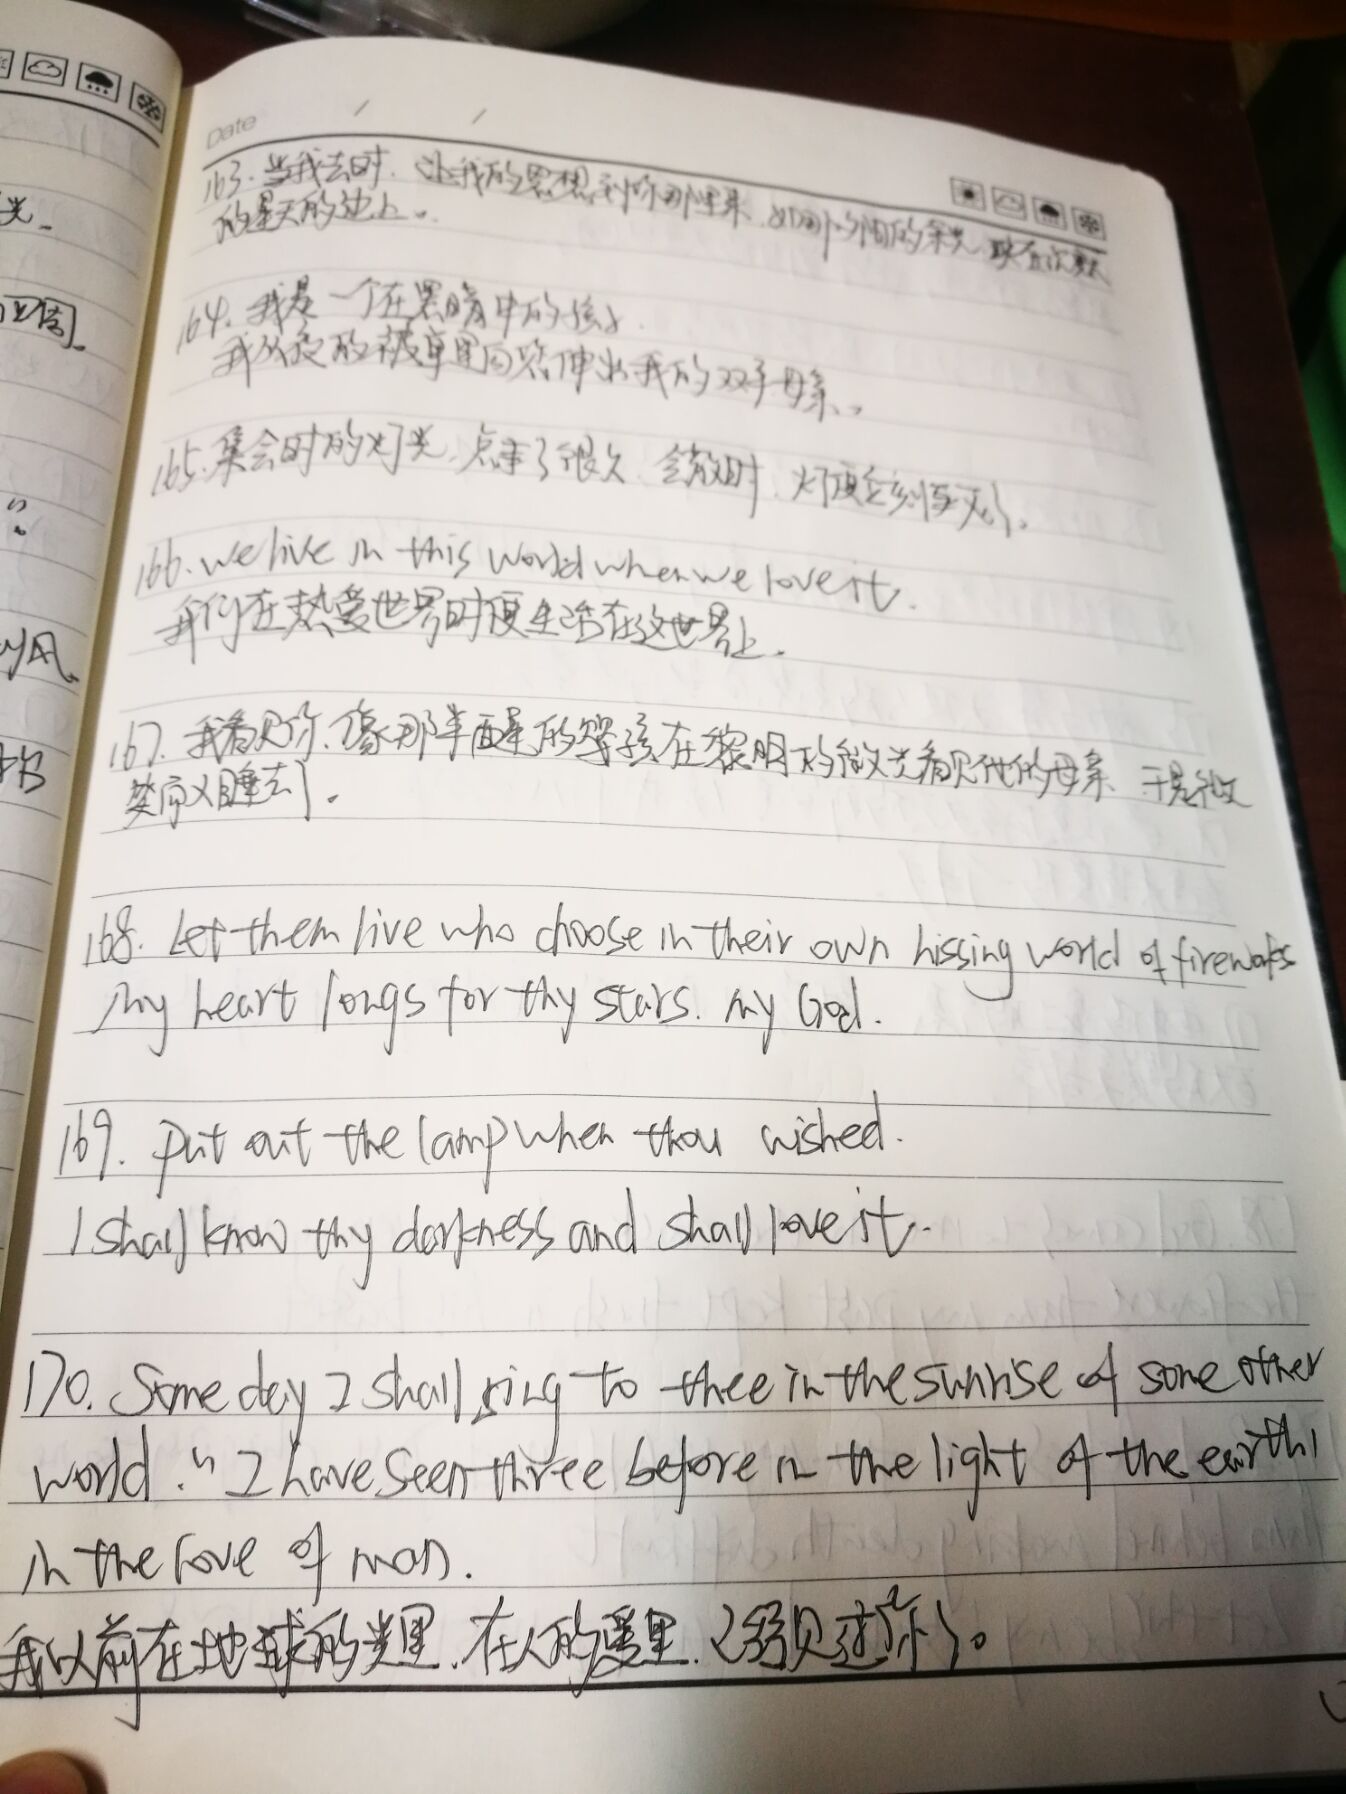 Date / /
163. 当我去时、让我的思想到你那里来、如那夕阳的余光、映在沉默
的星天的边上。
164. 我是一个在黑暗中的孩子.
我从夜的被单里向您伸出我的双手母亲。
165. 集会时的灯光、点了很久、会散时、灯便立刻灭了。
166. we live in this world when we love it.
我们在热爱世界时便生活在这世界上.
167. 我看见你、像那半醒的婴孩在黎明的微光看见他的母亲、于是微
笑而又睡去了.
168. Let them live who choose in their own hissing world of fireworks
my heart longs for thy stars. my God.
169. put out the lamp when thou wished.
I shall know thy darkness and shall love it.
170. Some day I shall sing to thee in the sunrise of some other
world. "I have seen three before in the light of the earth
in the love of man.
我以前在地球的光里、在人的爱里、已经见过你了。
光。
风